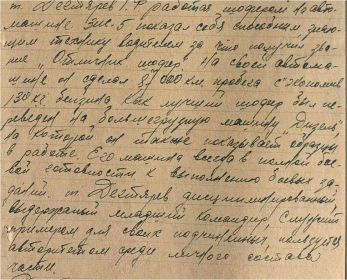 т. Дегтярев Г.Ф. работая шофером на авто-
машине Зис-5 показал себя способным знаю-
щим технику водителем за что получил зва-
ние "Отличник шофер". На своей автома-
шине он сделал 87000 км. пробега сэкономив
138 кг бензина. Как лучший шофер был пе-
реведен на большегрузную машину "Дизель"
на которой он также показывает образцы
в работе. Его машина всегда в полной бое-
вой готовности к выполнению боевых за-
даний. т. Дегтярев дисциплинированный,
выдержанный младший командир. Служит
примером для своих подчиненных, пользуется
авторитетом среди личного состава
части.